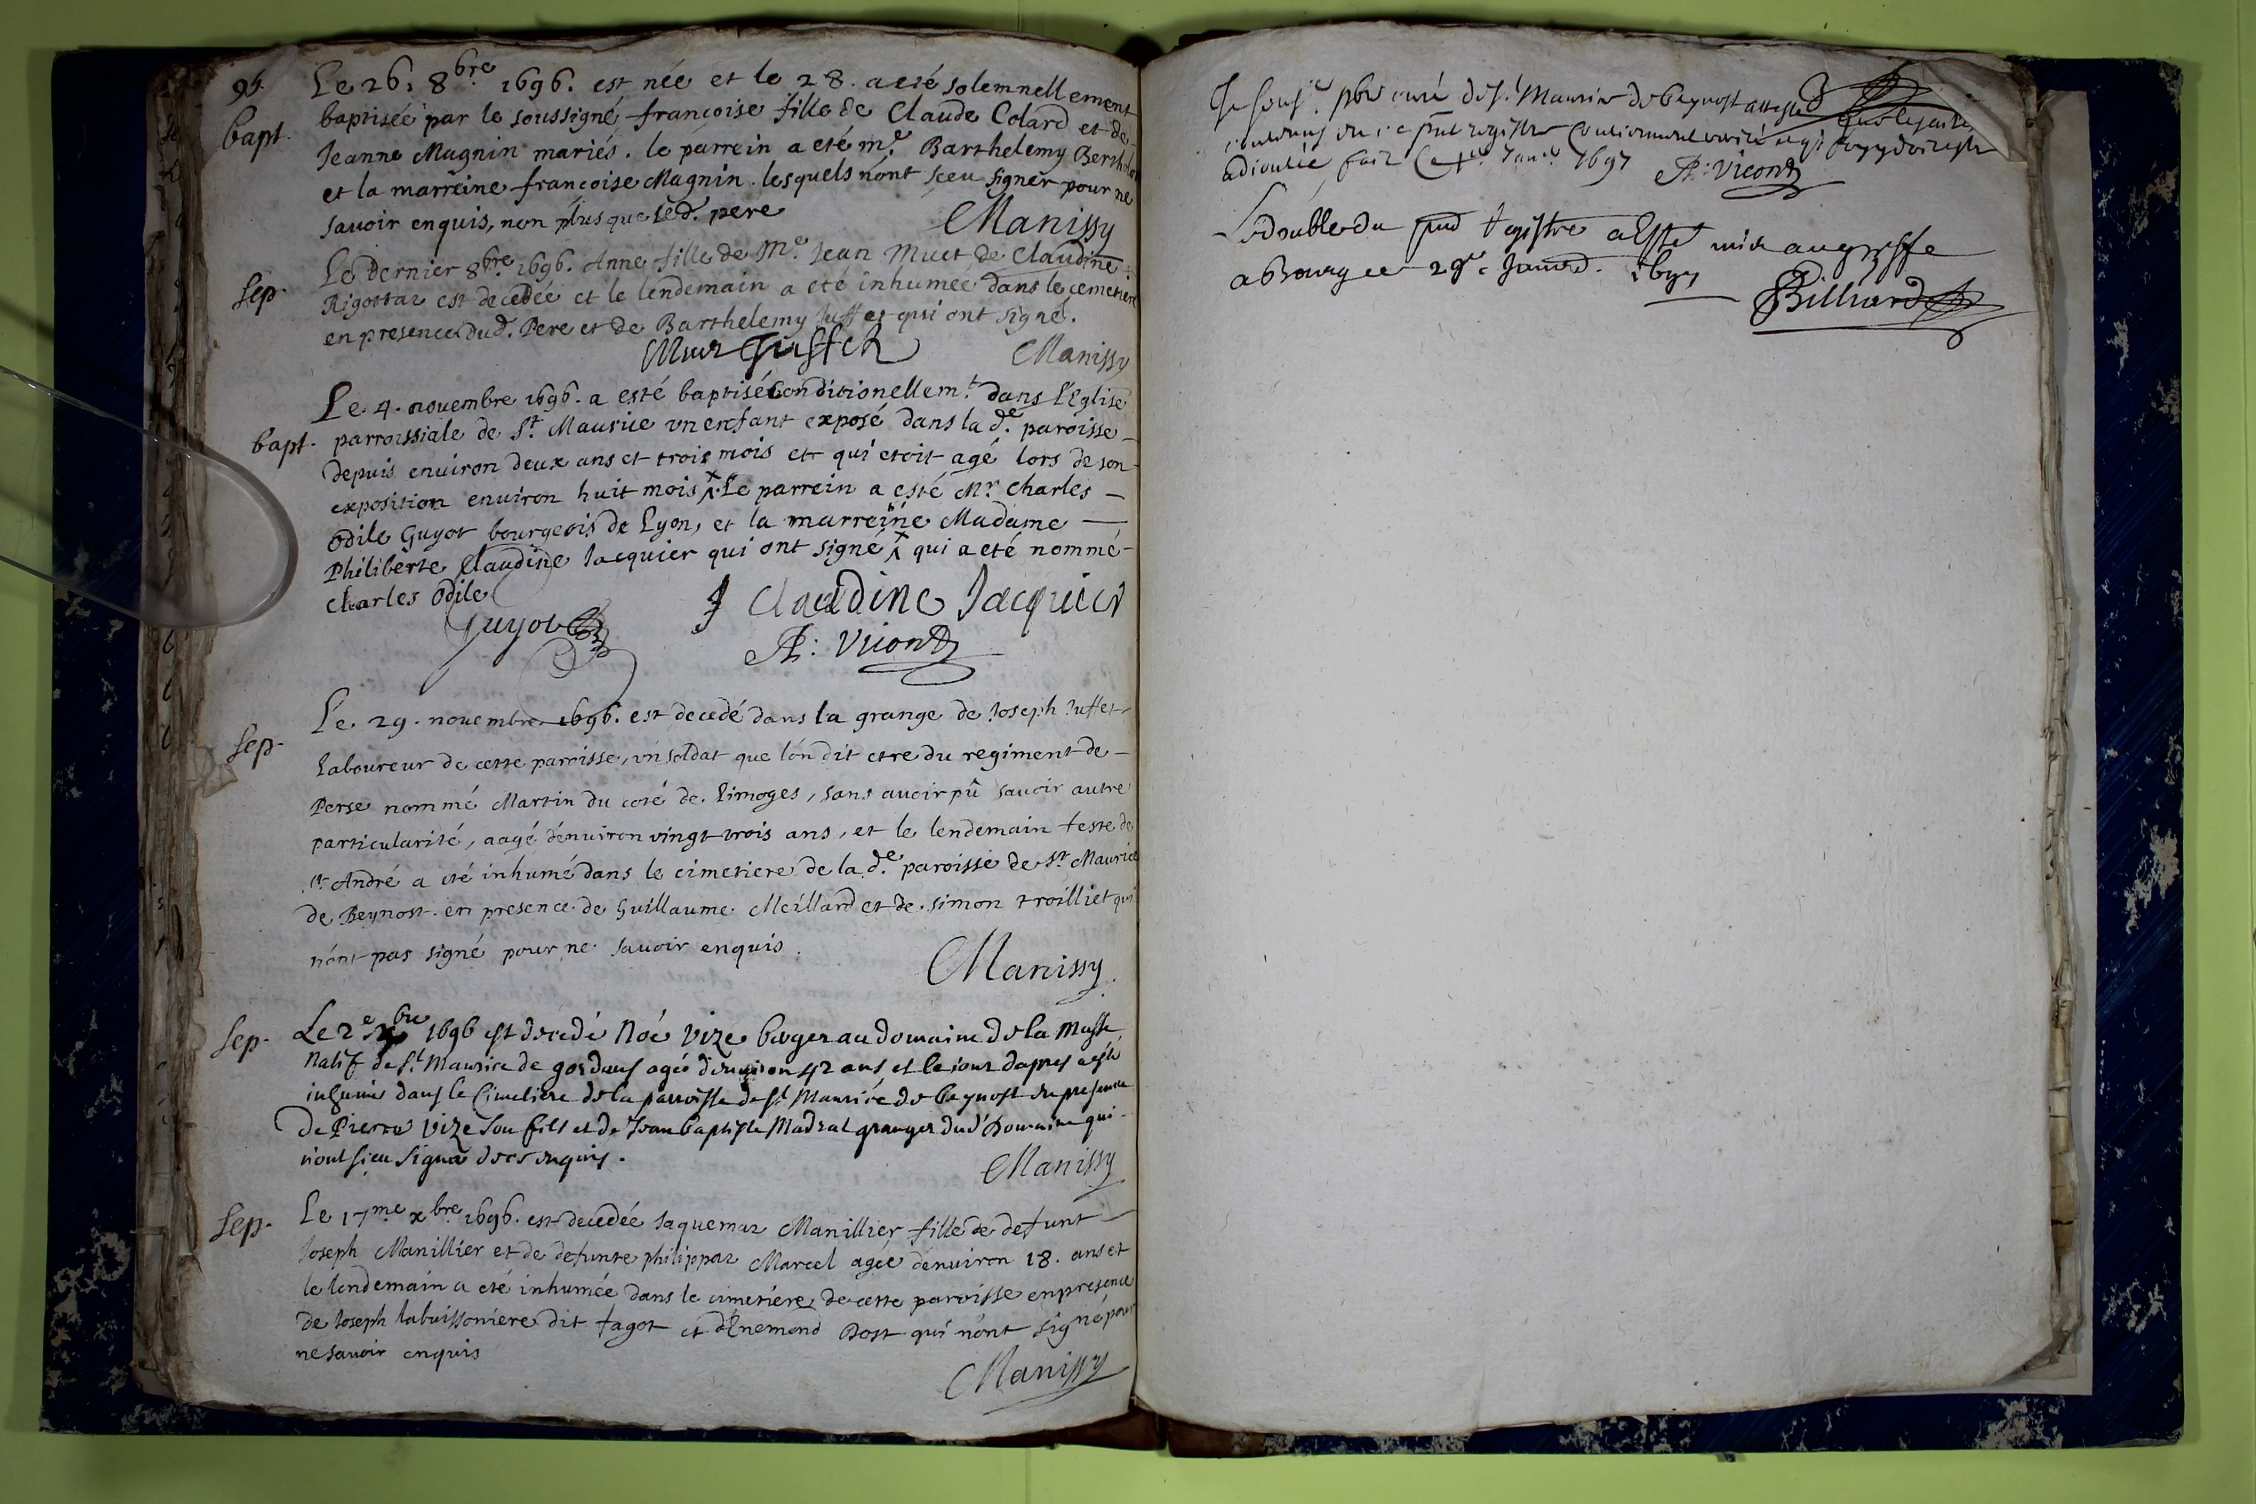 96.
Le 26. 8bre. 1696. est née et le 28. a eté solemnellement
bapt. baptisée par le soussigné françoise fille de Claude Colard et de
Jeanne Magnin mariés. le parrein a eté me. Barthelemy
et la marreine francoise Magnin. lesquels n'ont sceu signer pour ne
savoir enquis, non plus que led. pere
Manissy
Le dernier 8bre. 1696. Anne fille de Me. Jean Muet de Claudine
Sep. Rigottaz est decedée et le lendemain a eté inhumée dans le cemetiere
en presence dud. Pere et de Barthelemy Juffet qui ont signé.
Muet Juffet Manissy
Le 4. novembre 1696. a esté baptisé conditionellemt. dans l'Eglise
bapt. parroissiale de St. Maurice un enfant exposé dans la de. paroisse
depuis environ deux ans et trois mois et qui etoit agé lors de son
exposition environ huit mois x. Le parrein a esté Mr. Charles
Odile Guyot bourgeois de Lyon, et la marreine Madame
Philiberte Claudine Jacquier qui ont signé x qui a eté nommé
Charles Odile
Guyot J Claudine Jacquier
Vicond
Le 29. novembre 1696. est decedé dans la grange de Joseph Juffet
Sep. Laboureur de cette parroisse, un soldat que l'on dit etre du regiment de
Perse nommé Martin du coté de Limoges, sans avoir pû savoir autre
particularité, aagé d'environ vingt trois ans, et le lendemain feste de
St. André a eté inhumé dans le cimetiere de la de. paroisse de St. Maurice
de Beynost en presence de Guillaume Meillard et de Simon Troilliet qui
n'ont pas signé pour ne savoir enquis.
Manissy
Sep. Le 2e xbre 1696 est decedé Noé Vize berger au domaine de la
natif de St. Maurice de gourdans agé d'environ 42 ans et le jour d'apres a esté
inhumé dans le Cimetiere de la parroisse de St. Maurice de beynost en presence
de Pierre Vize son fils et de Jean baptiste granger dud. Domaine qui
n'ont sceu signer de ce enquis.
Manissy
Sep. Le 17me xbre. 1696. est decedée Jaquemaz Manillier fille de defunt
Joseph Manillier et de defunte philippaz Marcel agée d'environ 18. ans et
le lendemain a eté inhumée dans le cimetiere de cette paroisse en presence
de Joseph labuissoniere dit fagot et d'Enemond Dost qui n'ont signé pour
ne savoir enquis
Manissy
Je soussé. pbre curé de St. Maurice de beynost atteste
contenus en ce pnt registre
adioutée 1697 Vicond
Le double du pnt Registre a Esté mis au greffe
a Bourg ce 29e 1697
Billiard